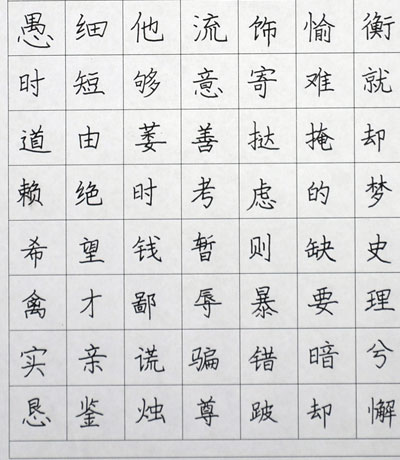 愚细他流饰愉衡
时短够意寄难就
道由萎善挞掩却
赖绝时考虑的梦
希望钱暂则缺史
禽才鄙辱暴要理
实亲谎骗错暗兮
恳鉴烛尊跛却懈